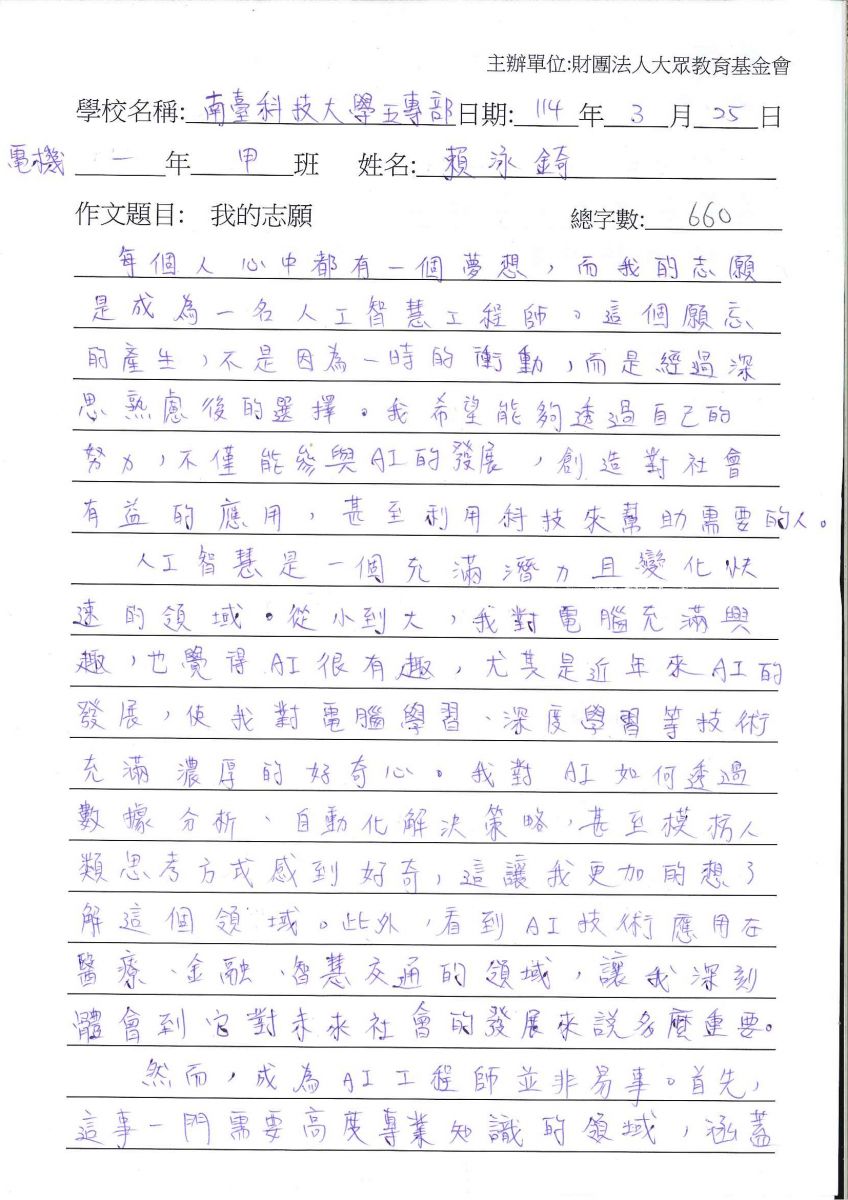 主辦單位:財團法人大眾教育基金會
學校名稱: 南臺科技大學五專部 日期: 114 年 3 月 25 日
電機 一 年 甲 班 姓名: 賴泳錡
作文題目: 我的志願 總字數: 660
每個人心中都有一個夢想，而我的志願
是成為一名人工智慧工程師。這個願忘
的產生，不是因為一時的衝動，而是經過深
思熟慮後的選擇。我希望能夠透過自己的
努力，不僅能參與AI的發展，創造對社會
有益的應用，甚至利用科技來幫助需要的人。
人工智慧是一個充滿潛力且變化快
速的領域。從小到大，我對電腦充滿興
趣，也覺得AI很有趣，尤其是近年來AI的
發展，使我對電腦學習、深度學習等技術
充滿濃厚的好奇心。我對AI如何透過
數據分析、自動化解決策略，甚至模枴人
類思考方式感到好奇，這讓我更加的想了
解這個領域。此外，看到AI技術應用在
醫療、金融、智慧交通的領域，讓我深刻
體會到它對未來社會的發展來說多麼重要。
然而，成為AI工程師並非易事。首先，
這事一門需要高度專業知識的領域，涵蓋